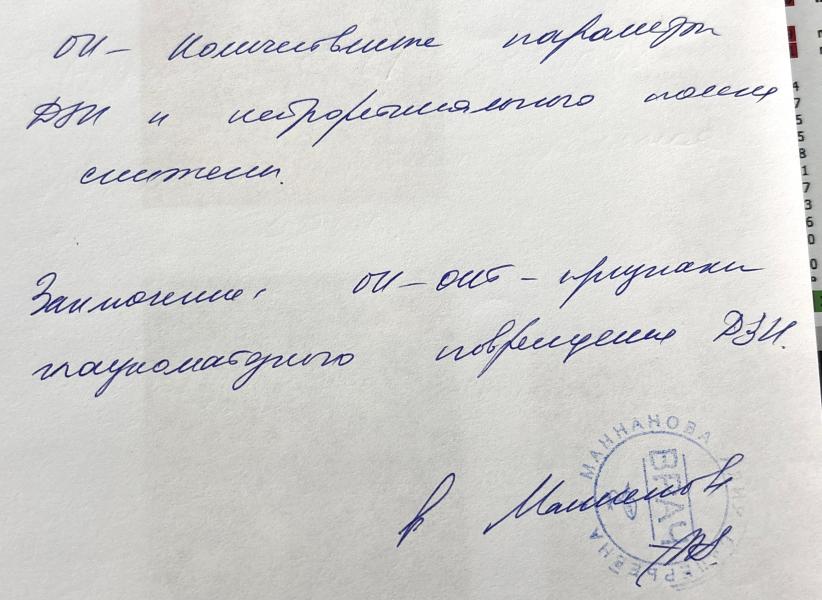 ОИ - Количественные параметры
ДЗН и нейроретинального пояска
снижены.
Заключение: ОИ - ОКТ - признаки
глаукоматозного повреждения ДЗН.
Маннанова
МАННАНОВА
ВРАЧ